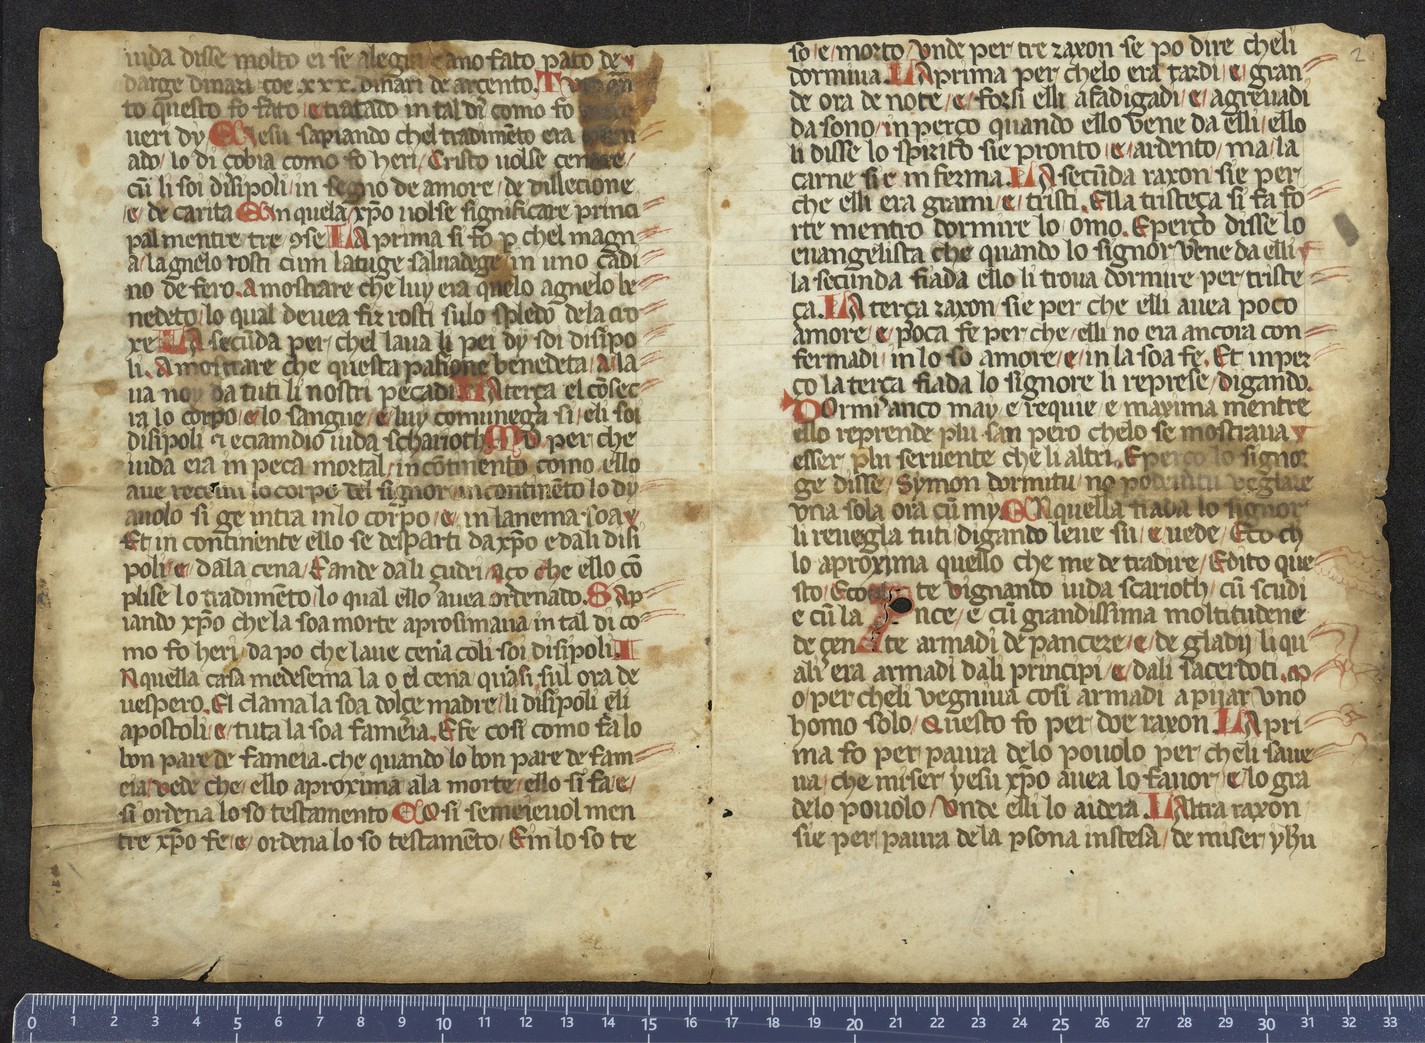 iuda disse molto ei se alegra e ano fato pato de
darge dinari coe .xxx. dinari de arcento. T
to questo fo fato e tratado in tal di como fo
ueri dy Et yesu sapiando chel tradimēto era
ado/ lo di cobia como fo heri/ Cristo uolse cenare/
cū li soi disipoli/ in segno de amore/ de dillecione
/e/ de carita Et in quela xp̄o uolse significare princi
pal mentre tre 9se LA prima si fo p chel magn
a/ lagnelo rosti cum latuge saluadege in uno cadi
no de fero. Amostrare che luy era quelo agnelo be
nedeto/ lo qual deuea fir rosti sulo spledō dela cro
xe LA secūda per/ chel laua li pei dy soi disipo
li. Amostrare che questa pasione benedeta/ a/ la
ua noy da tuti li nostri pecadi LA terça el cōsec
ra lo corpo/ e lo sangue/ e luy comunega si/ eli soi
disipoli & eciamdio iuda scharioth MO per che
iuda era in peca mortal/ in cōtinento como ello
aue receuu lo corpo del signor/ incontinēto lo dy
auolo si ge intra in lo corpo/ e/ in lanema soa
Et in continente ello se desparti da xp̄o e dali disi
poli/ e/ dala cena/ Eande dali çudei/ aço che ello cō
plise lo tradimēto/ lo qual ello auea ordenado. SAp
iando xp̄o che la soa morte aprosimaua in tal di co
mo fo heri/ da po che laue cena cōli soi disipoli. I
N quella casa medesema la o el cena quasi sul ora de
uespero. El clama la soa dolçe madre/ li disipoli eli
apostoli/ e/ tuta la soa fameia. Efe cosi como fa lo
bon pare de fameia. che quando lo bon pare de fam
eia/ vede che/ ello aproxima ala morte/ ello si fa/ e/
si ordena lo so testamento COsi semeieuol men
tre xp̄o fe/ e/ ordena lo so testamēto/ Ein lo so te
2
so/ e/ morto/ Vnde per tre raxon se po dire cheli
dormiua. LA prima per chelo era tardi/ e/ gran
de ora de note/ e/ forsi elli afadigadi/ e/ agreuadi
da sono/ in perço quando ello vene da elli/ ello
li disse lo spirito sie pronto/ e/ ardento/ ma/ la
carne sie inferma. LA secūda raxon sie per
che elli era grami/ e/ tristi. Ella tristeça si fa fo
rte mentro dormire lo omo. Eperço disse lo
euangelista che quando lo signor vene da elli
la secunda fiada ello li troua dormire per triste
ça. LA terça raxon sie per che elli auea poco
amore/ e/ poca fe per che/ elli no era ancora con
fermadi/ in lo so amore/ e/ in la soa fe. Et inper
ço la terça fiada lo signore li represe/ digando.
DOrmi anco may e requie/ e maxima mentre
ello reprende plu san pero chelo se mostraua
esser plu feruente che li altri. Eperço lo signor
ge disse/ Symon dormitu/ no podeuitu veglare
vna sola ora cū my EN quella fiada lo signor
li reuegla tuti/ digando leue su/ e/ uede/ Eco ch
lo aproxima quello che me de tradire/ Edito que
sto/ Eco te vignando iuda scarioth/ cū scudi
e cū la nce/ e cū grandissima moltitudene
de çen te armadi de pançere/ e/ de gladij li qu
ali era armadi dali principi/ e/ dali sacerdoti. M
o/ per cheli vegniua cosi armadi a pijar vno
homo solo/ Questo fo per doe raxon LA pri
ma fo per paura delo pouolo per cheli saue
ua/ che miser yesu xp̄o auea lo fauor/ e/ lo gra
delo pouolo/ Vnde elli lo aidera. LAltra raxon
sie per/ paura dela psona instesa/ de miser yhu